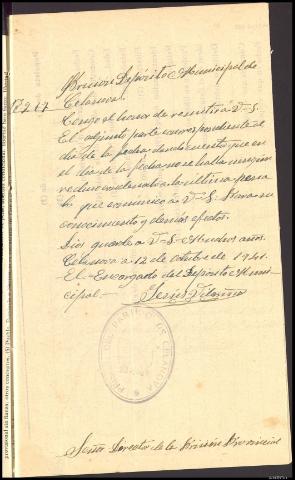 Prision Depósito Municipal de
Celanova.
Tengo el honor de remitir a V-S-
El adjunto parte correspondiente al
dia de la fecha dandole cuenta que en
el dia de la fecha no se halla ningun
recluso condenado a la última pena
lo que comunico a V-S- Para su
conocimiento y demas efectos.
Dios guarde a V-S- Muchos años.
Celanova a 12 de Octubre de 1941.
El Encargado del Deposito Muni-
cipal-
PARTIDO DE CELANOVA
Señor Director de la Prision Provincial